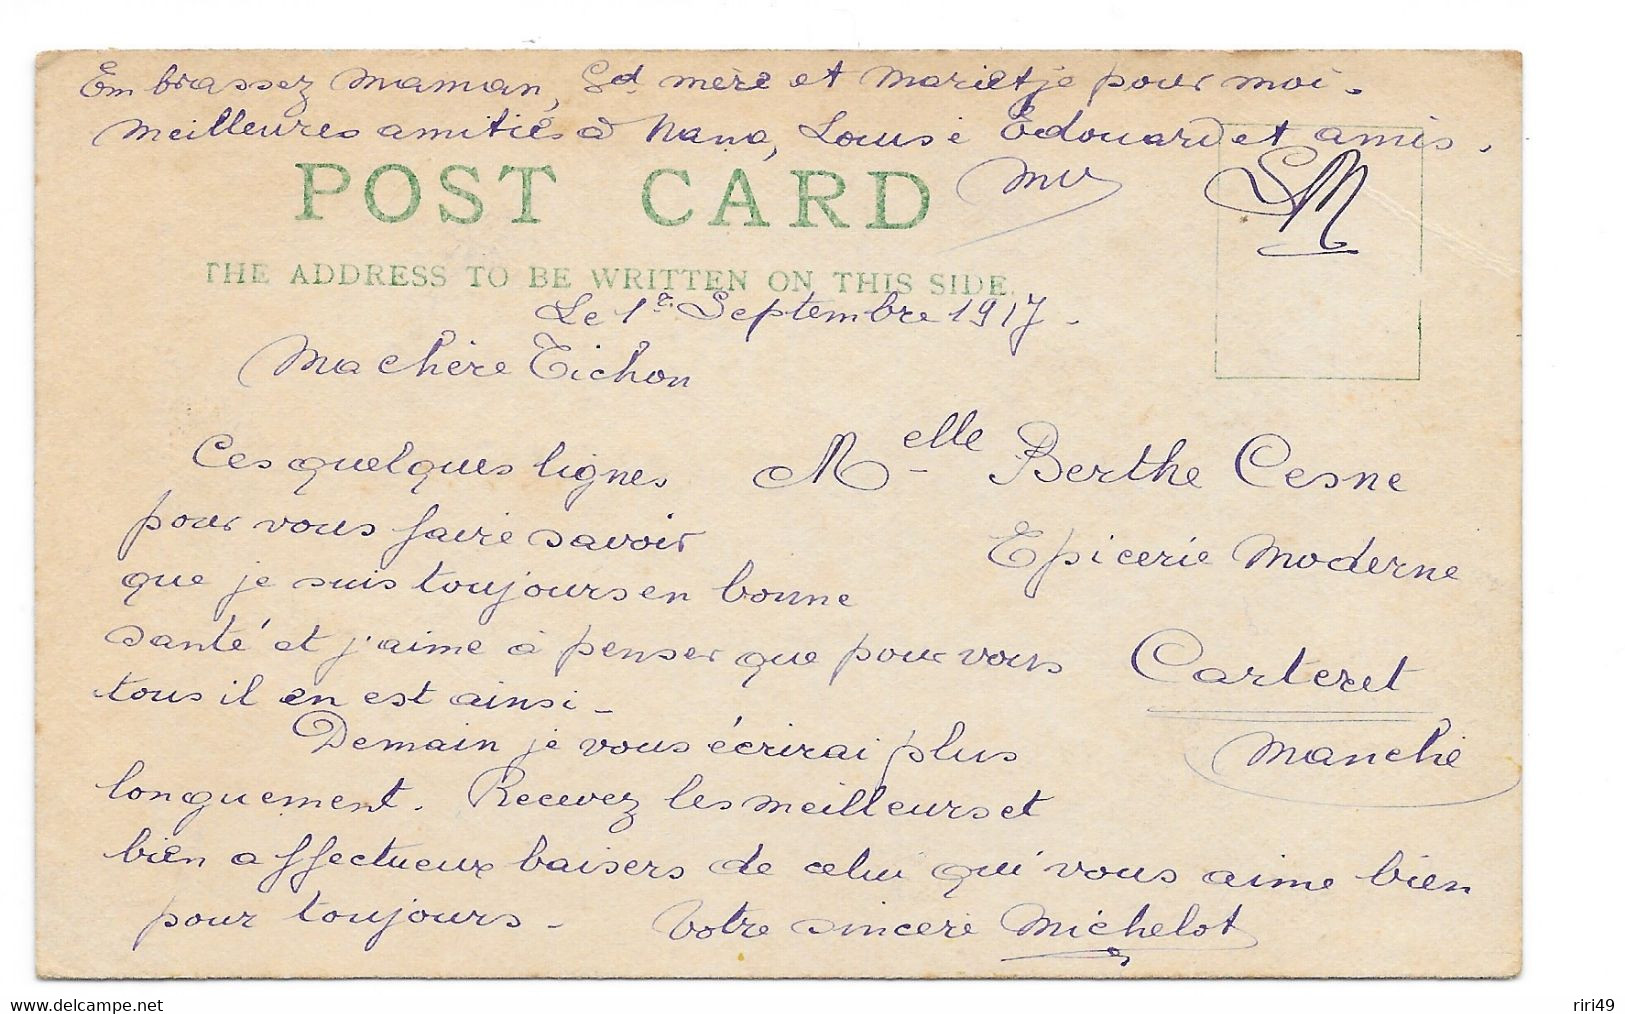 Embrassez Maman, Gd mère et Marietje pour moi.
Meilleures amitiés à Nana, Louise Edouard et amis.
POST CARD
SM
THE ADDRESS TO BE WRITTEN ON THIS SIDE.
Le 1er Septembre 1917.
Ma chère Tichon
Ces quelques lignes
pour vous faire savoir
que je suis toujours en bonne
santé et j'aime à penser que pour vous
tous il en est ainsi -
Demain je vous écrirai plus
longuement. Recevez les meilleurs et
bien affectueux baisers de celui qui vous aime bien
pour toujours - Votre sincère Michelot
Melle Berthe Cesne
Epicerie Moderne
Carteret
Manche
www.delcampe.net
riri49